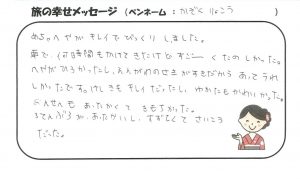 旅の幸せメッセージ (ペンネーム : かぞくりょこう )
めちゃへやが キレイで びっくり しました。
車で、何時間もかけてきたけど すごー くたのしかった。
へやがひろかったし、おんがのせきがすきだから あってうれ
しかったです。けしきも キレイだったし、ゆかたもかわいかった。
おんせんも あたたかくて きもちかった。
ろてんぶろが、あたたかいし、すずしくて さいこう
だった。